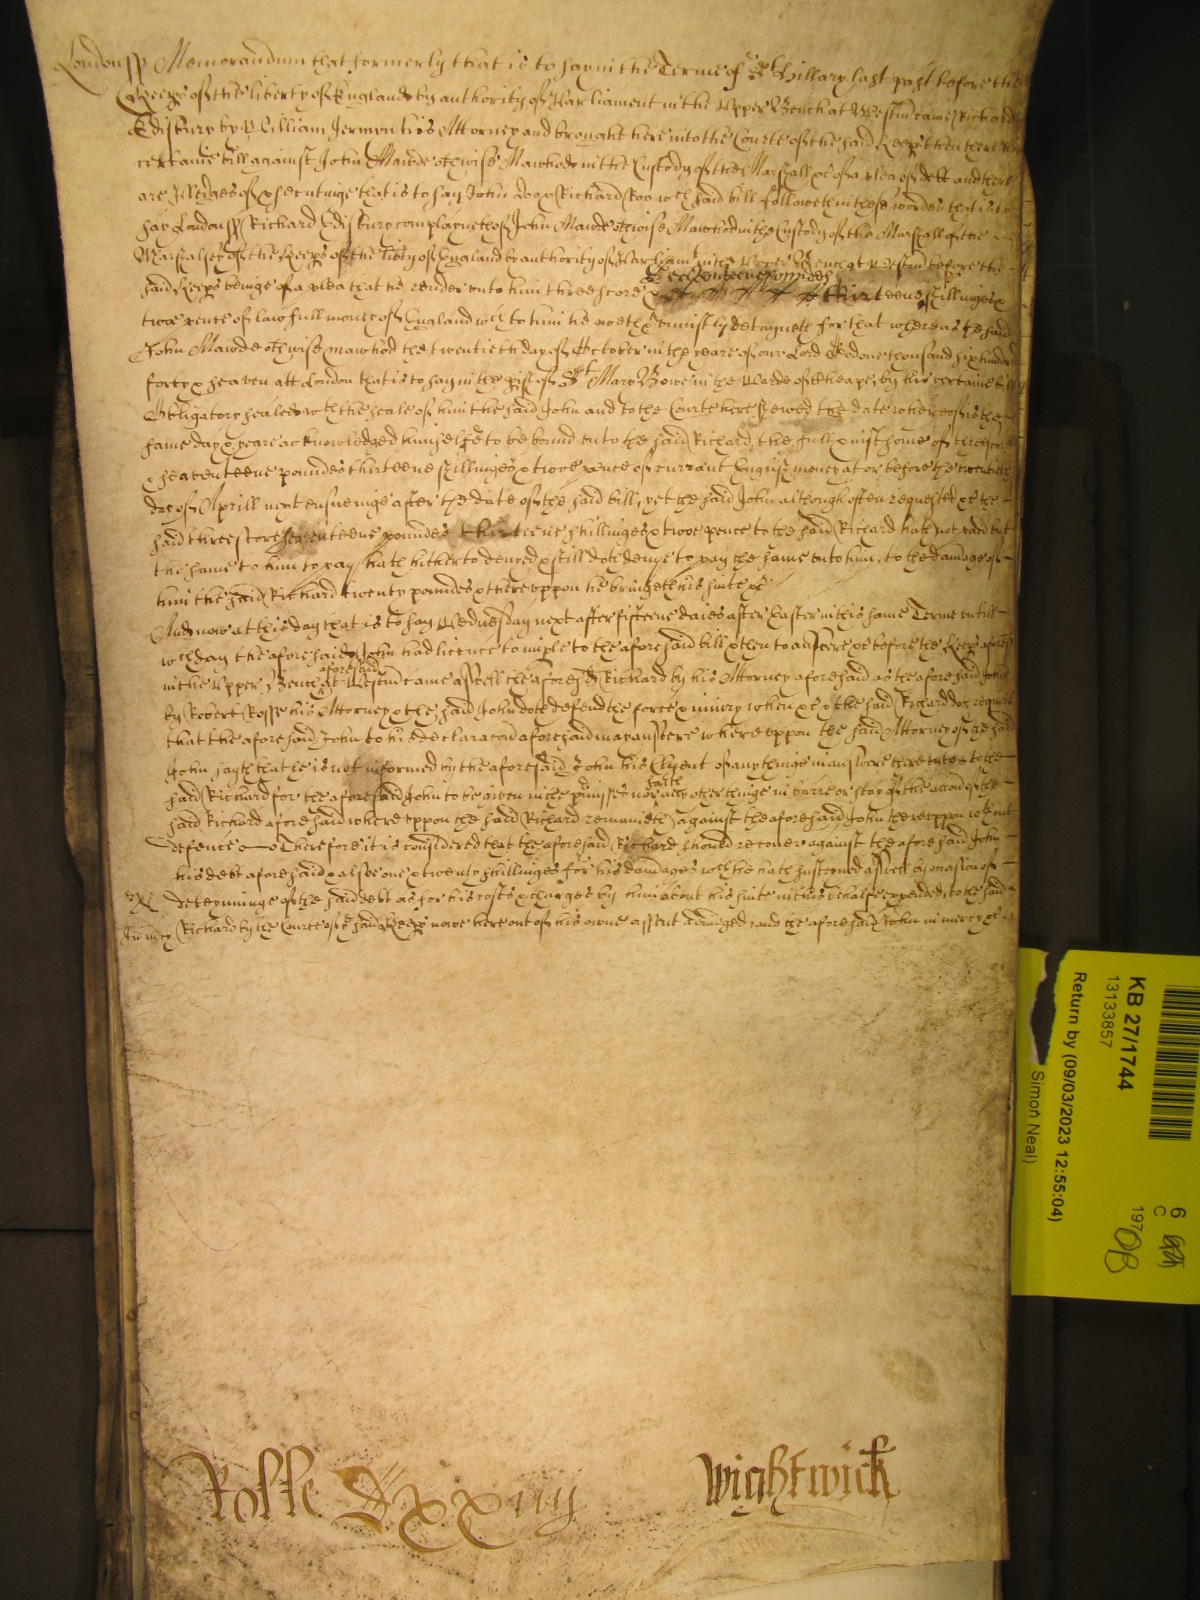 London ss Memorandum that formerly that is to say in the Terme of St Hillary last past before the
Keeps of the liberty of England by authority of Parliament in the Upper Bench at Westm came Richard
Edisbury by William Jermyn his Attorney and brought here into the Courte of the said Keeps then there his
certaine bill against John Mawde othwise Mawhod in the Custody of the Marshall &c of a plea of debt and there
are pledges of prosecutinge that is to say John Doo & Richard Roo wch said bill followeth in these wordes that is to
say London ss Richard Edisbury complayneth of John Mawde othwise Mawhod in the Custody of the Marshall of the
Marshalsey of the Keeps of the libty of England by authority of Parliamt in the Upper Bench at Westm before the
seaventeene powndes
said Keeps beinge of a plea that he render unto him threescore & thirteene shillinges &
twoe pence of lawfull money of England wch to him he oweth & uniustly detayneth for that whereas the said
John Mawde othwise Mawhod the twentieth day of October in the yeare of our Lord God one thousand six hundred
forty & seaven att London that is to say in the pish of St Mary Bowe in the Warde of Cheape, by his certaine bill
Obligatory sealed wth the seale of him the said John and to the Courte here shewed the date whereof is the
same day & yeare acknowledged himselfe to be bound unto the said Richard, the full & iust some of threescore
& seaventeene poundes thirteene shillinges & twoe pence of currant English money at or before the twentieth
day of Aprill next ensueinge after the date of the said bill, yet the said John although often requested &c the
said threescore seaventeene poundes thirteene shillinges & twoe pence to the said Richard hath not paid but
the same to him to pay hath hitherto denyed & still doth denie to pay the same unto him, to the damage of
him the said Richard twenty poundes & thereuppon he bringeth his suite &c
And now at this day that is to say Wednesday next after fifteene daies after Easter in this same Terme untill
wch day the aforesaid John had licence to imple to the aforesaid bill & then to answere &c before the Keeps aforesd
aforesaid
in the Upper Bench at Westm came aswell the aforesd Richard by his Attorney aforesaid as the aforesaid John
by Robert Rosse his Attorney & the said John doth defend the force & iniury when &c & the said Richard doth require
that the aforesaid John to his declaracon aforesaid may answere whereuppon the said Attorney of the said
John sayth that he is not informed by the aforesaid John his Clyent of any thinge in answere thereunto to the
saith
said Richard for the aforesaid John to be given in the pmisses nor any other thinge in barre or stay of the accon of the
said Richard aforesaid whereuppon the said Richard remaineth against the aforesaid John thereuppon without
defence Therefore it is considered that the aforesaid Richard should recover against the aforesaid John
his debt aforesaid & alsoe one & twenty shillinges for his damages wch he hath susteyned aswell by occasion of
deteyninge of the said debt as for his costs & charges by him about his suite in this behalfe expended, to the said
In mcy Richard by the Courte of the said Keeps nowe here out of his owne assent adiudged, and the aforesaid John in mercy &c
Rolle Dxxiiij Wightwick
KB 27/1744
13133857
Return by (09/03/2023 12:55:04)
Simon Neal)
6
C
197